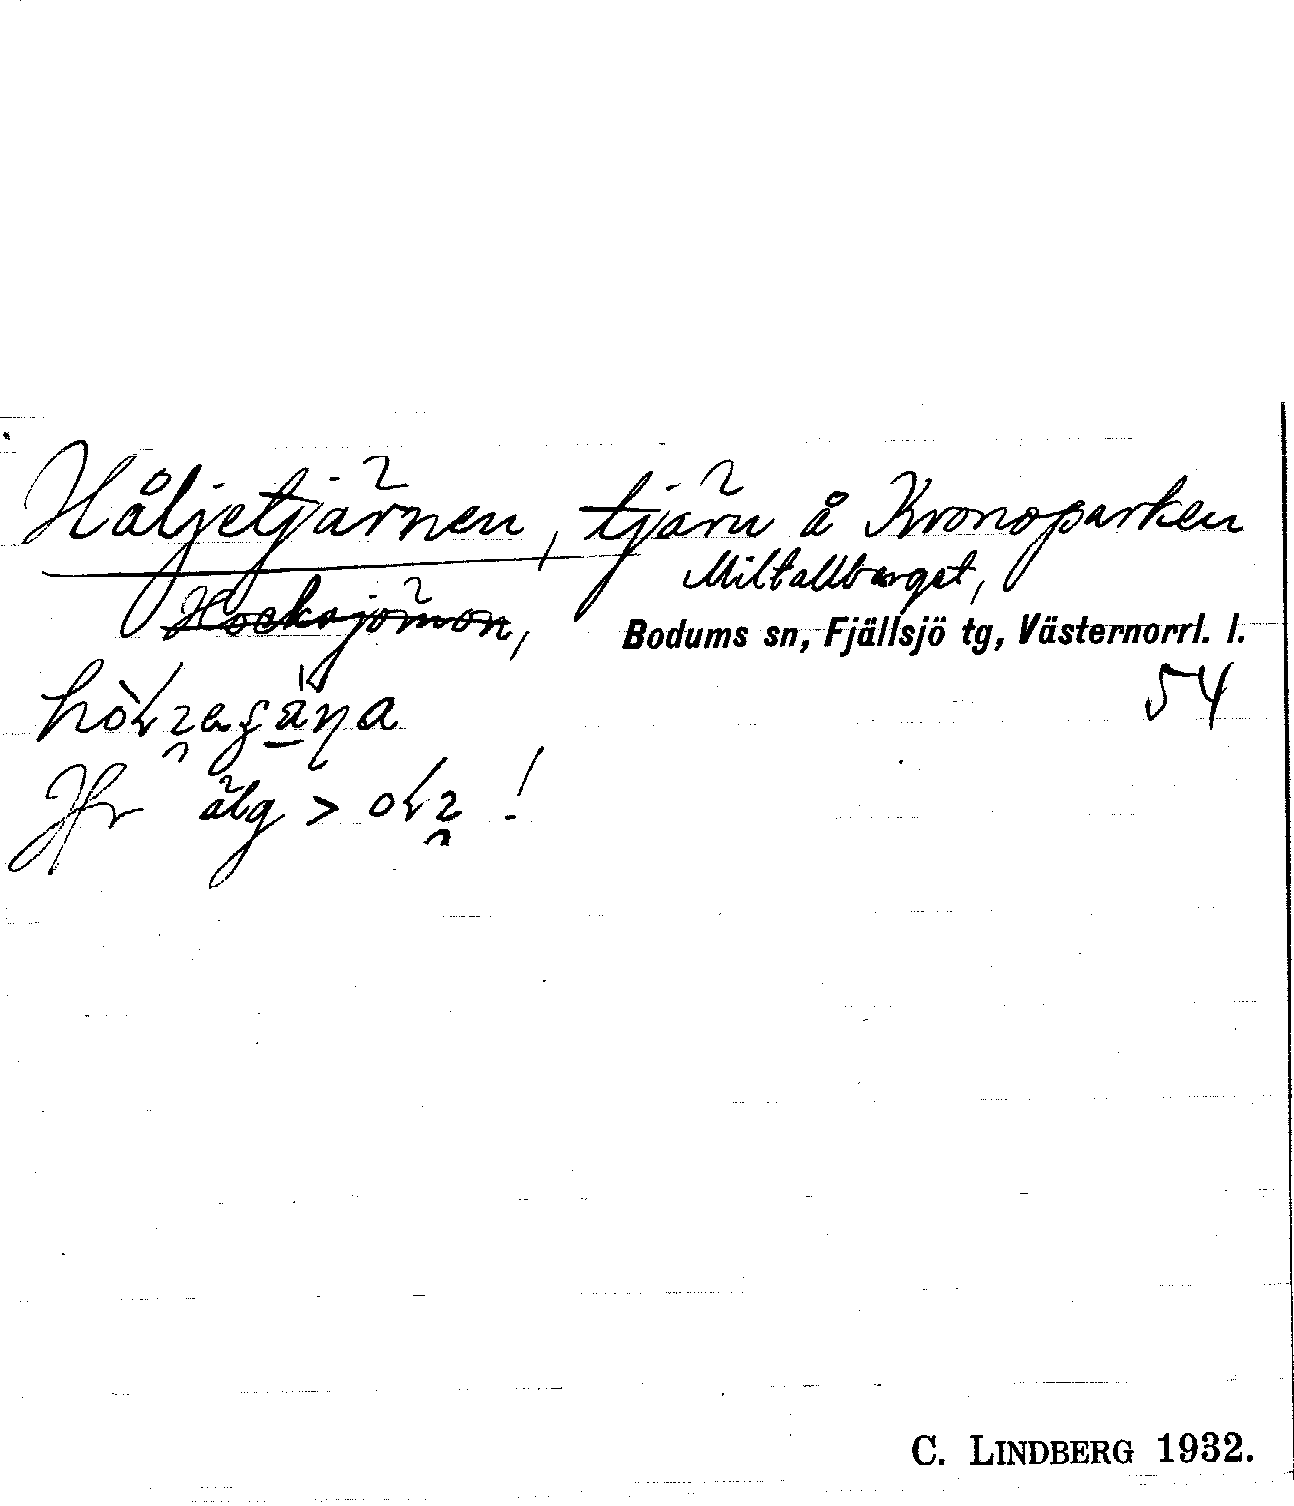 Håljetjärnen, tjärn å Kronoparken
Miltallberget,
Hocksjömon,
Bodums sn, Fjällsjö tg, Västernorrl. l.
54
Jfr älg >
!
C. LINDBERG 1932.